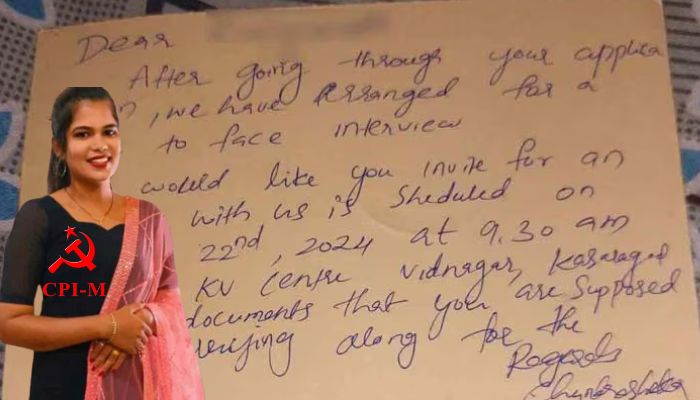 Dear
After going through your applica
n, we have Arranged for a
to face interview
would like you invite for an
with us is Sheduled on
22nd, 2024 at 9.30 am
KV Centre Vidnagar, Kasaragod
documents that you are Supposed
along for the
Regards
CPI-M